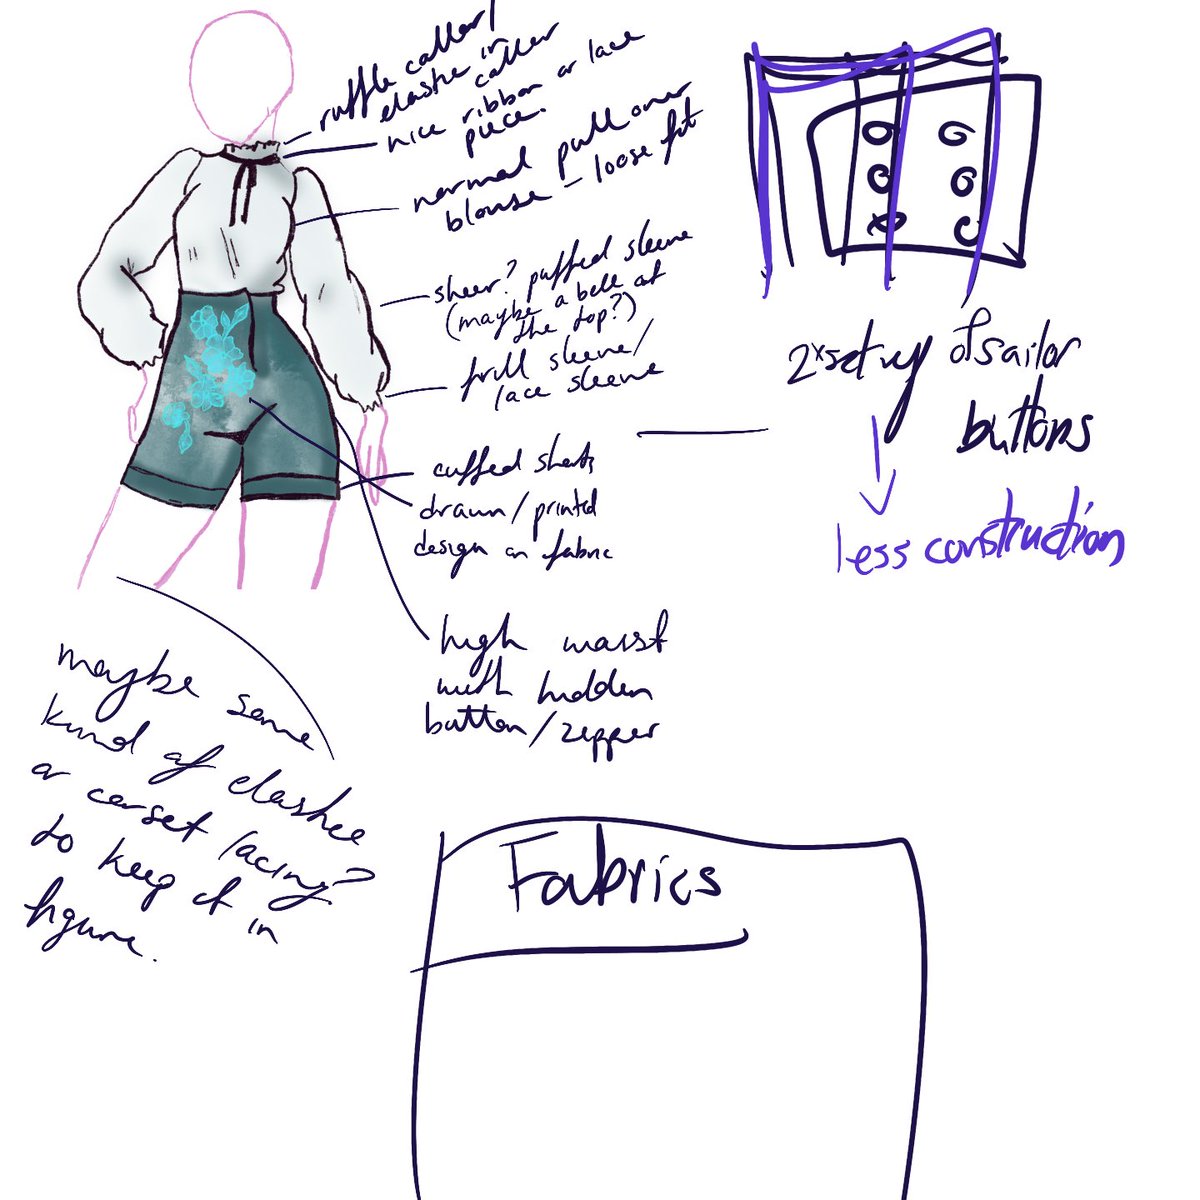 ruffle coller/
elastic in
coller
nice ribbon or lace
piece.
normal pull over
blouse – loose fit
sheer? puffed sleeve
(maybe a belt at
the top?)
frill sleeve/
lace sleeve
cuffed shorts
drawn/printed
design on fabric
high waist
with hidden
button/zipper
maybe some
kind of elastic
or corset lacing?
to keep it in
figure.
2x set of sailor
buttons
less construction
Fabrics